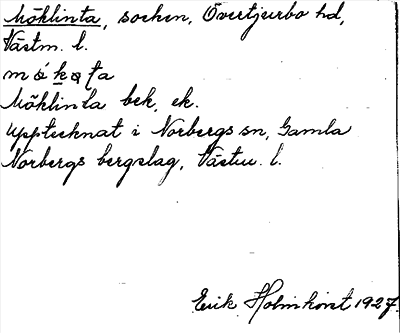 Möklinta, socken, Övertjurbo hd,
Västm. l.
Möklinta bek. ek.
Upptecknat i Norbergs sn, Gamla
Norbergs bergslag, Västm. l.
Erik Holmkvist 1927.